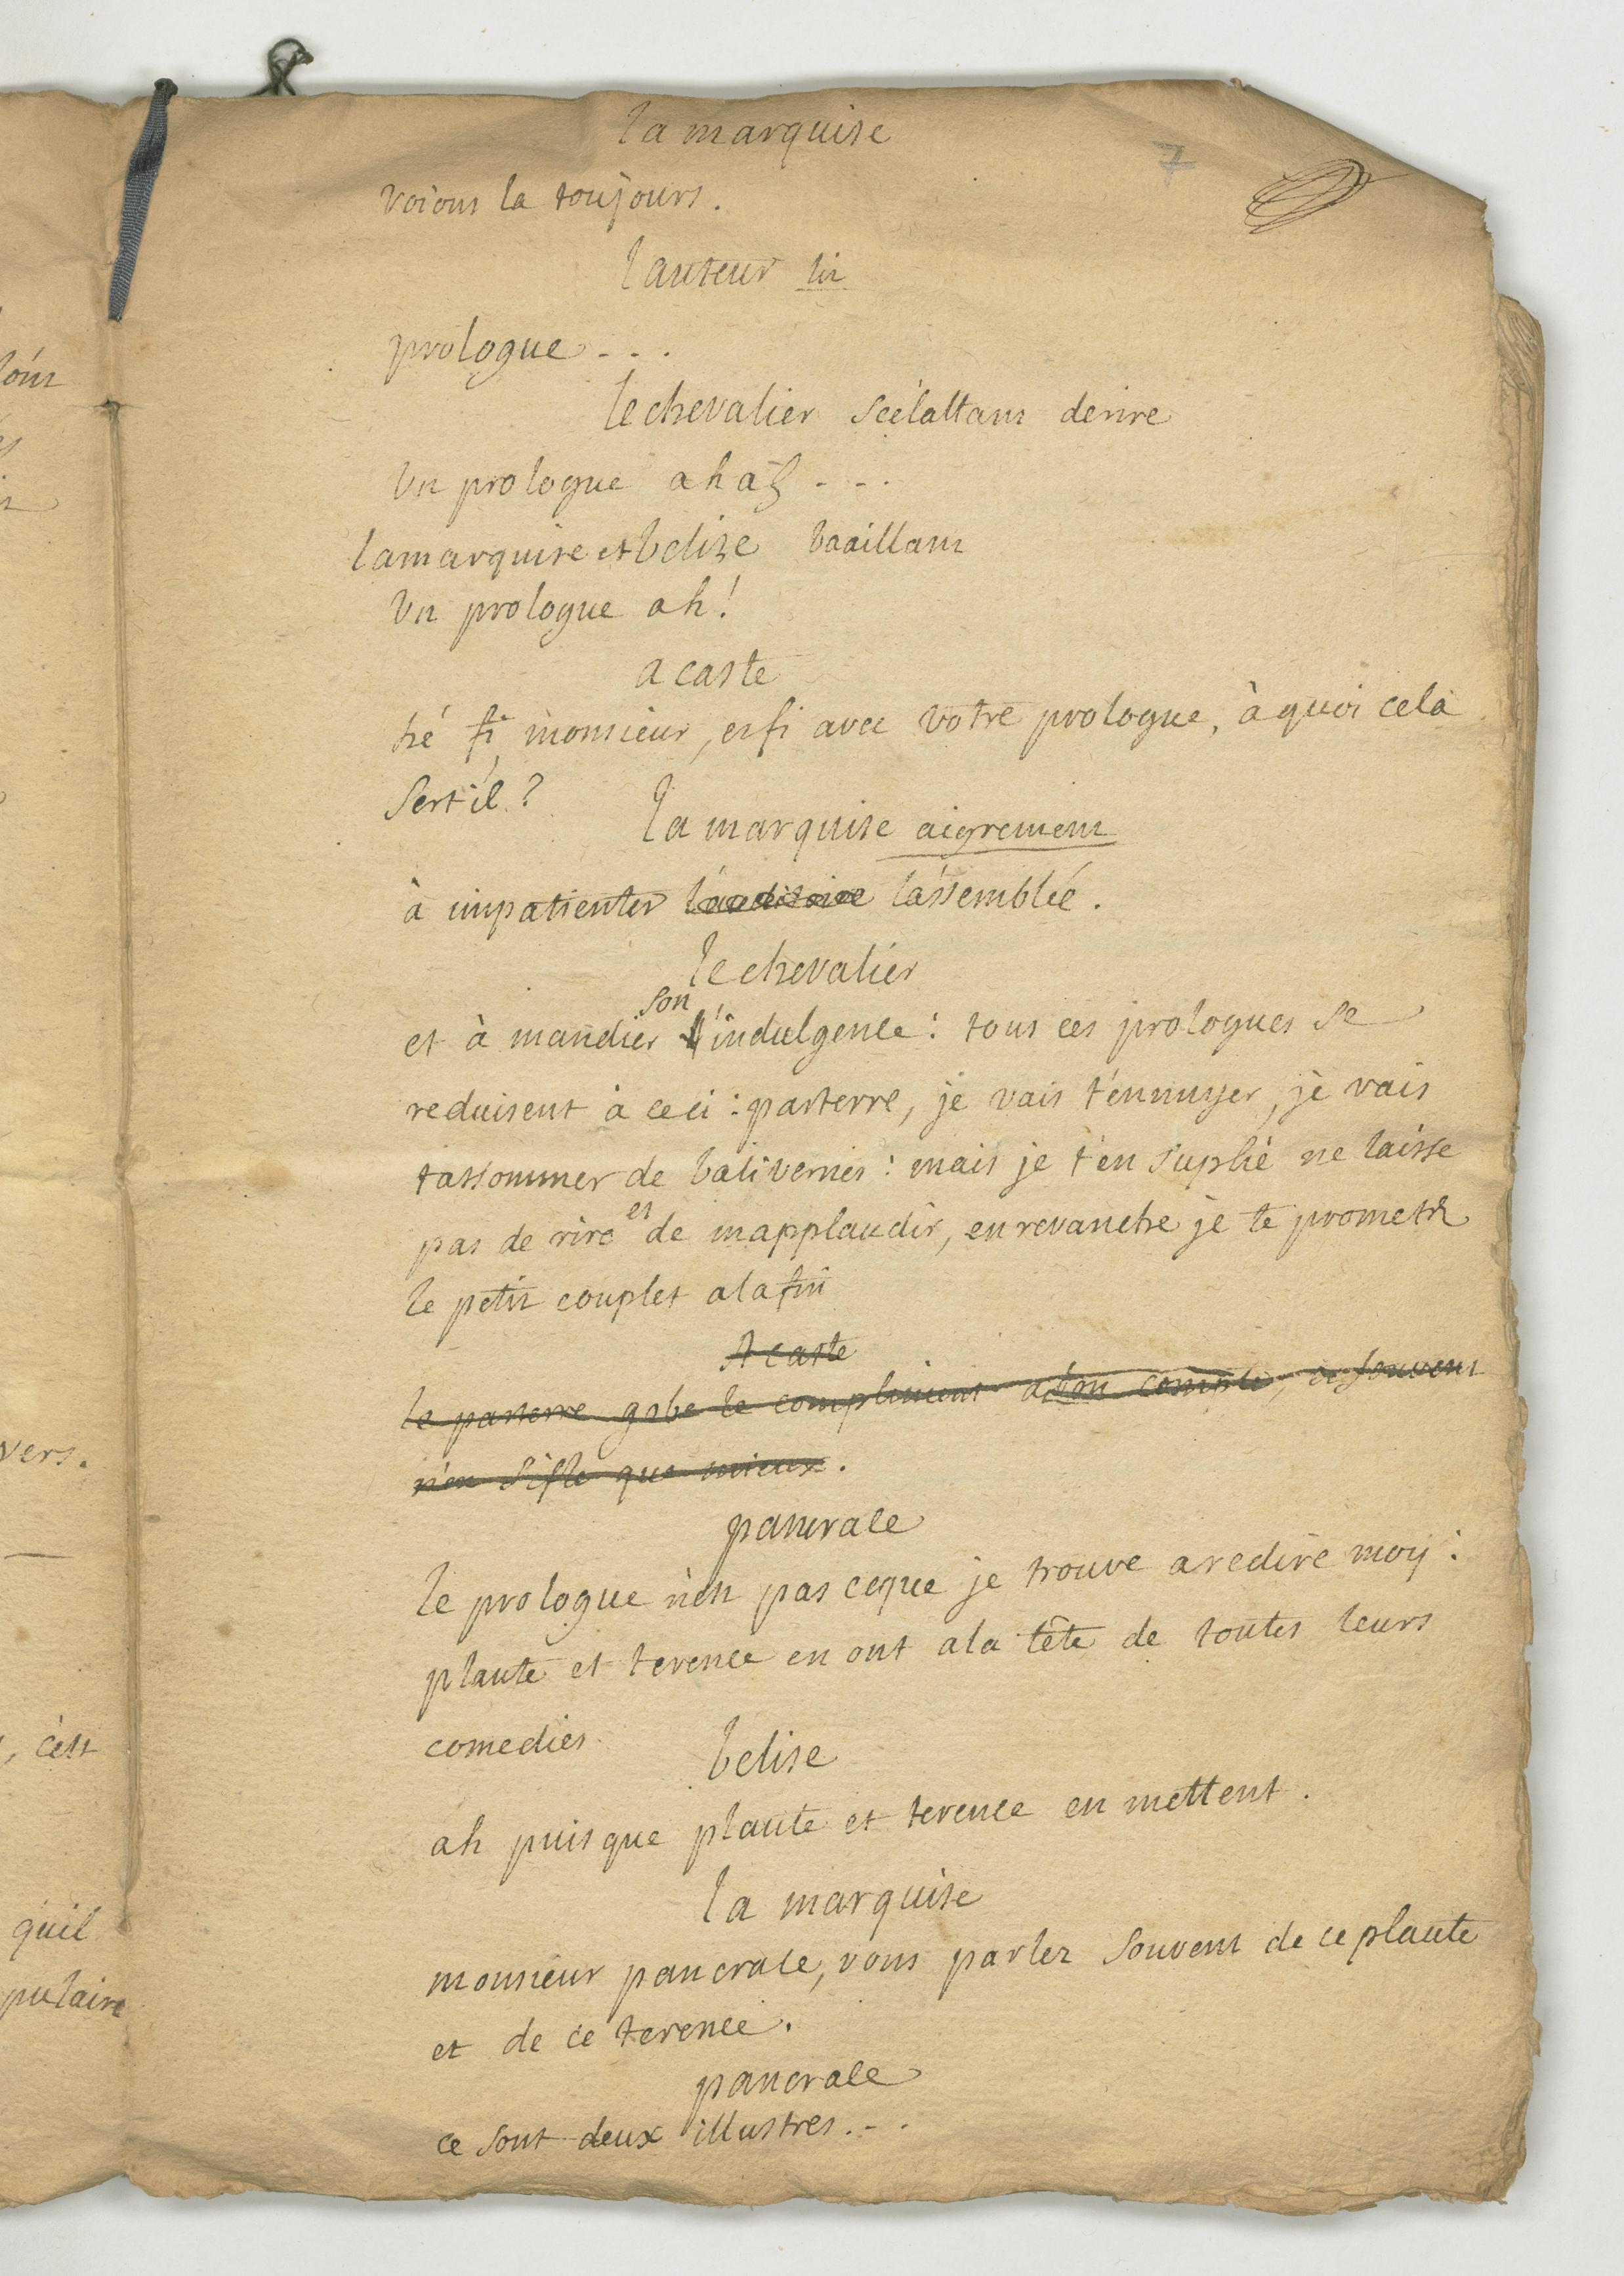 la marquise
7
voions la toujours.
lauteur lit
prologue - - .
le chevalier s'éclattant de rire
un prologue ah ah - - .
la marquise et belize baaillant
un prologue ah!
acaste
hé fi monsieur, et fi avec votre prologue, à quoi cela
sert il?
la marquise aigrement
à impatienter l'auditoire l'assemblée.
le chevalier
son
et à mandier l'indulgence: tous ces prologues se
reduisent à ceci: parterre, je vais t'ennuyer, je vais
tassommer de balivernes: mais je t'en suplie ne laisse
et
pas de rire de mapplaudir, en revanche je te promets
le petit couplet a la fin
Acaste
le parterre gobe le compliment a bon compte, et souvent
n'en sifle que mieux.
pancrace
le prologue n'est pas ce que je trouve a redire moy:
plaute et terence en ont a la tête de toutes leurs
comedies
belise
ah puisque plaute et terence en mettent.
la marquise
monsieur pancrace, vous parlez souvent de ce plaute
et de ce terence.
pancrace
ce sont deux illustres. - .
vers.
, c'est
quil
pulaire